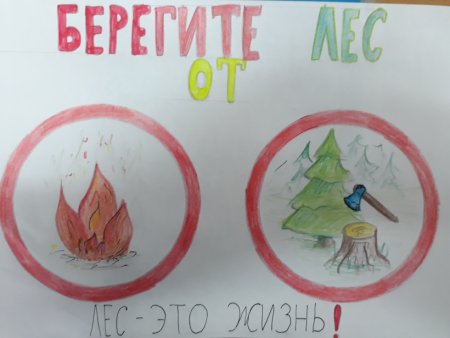 БЕРЕГИТЕ ЛЕС
ОТ
ЛЕС-ЭТО ЖИЗНЬ!